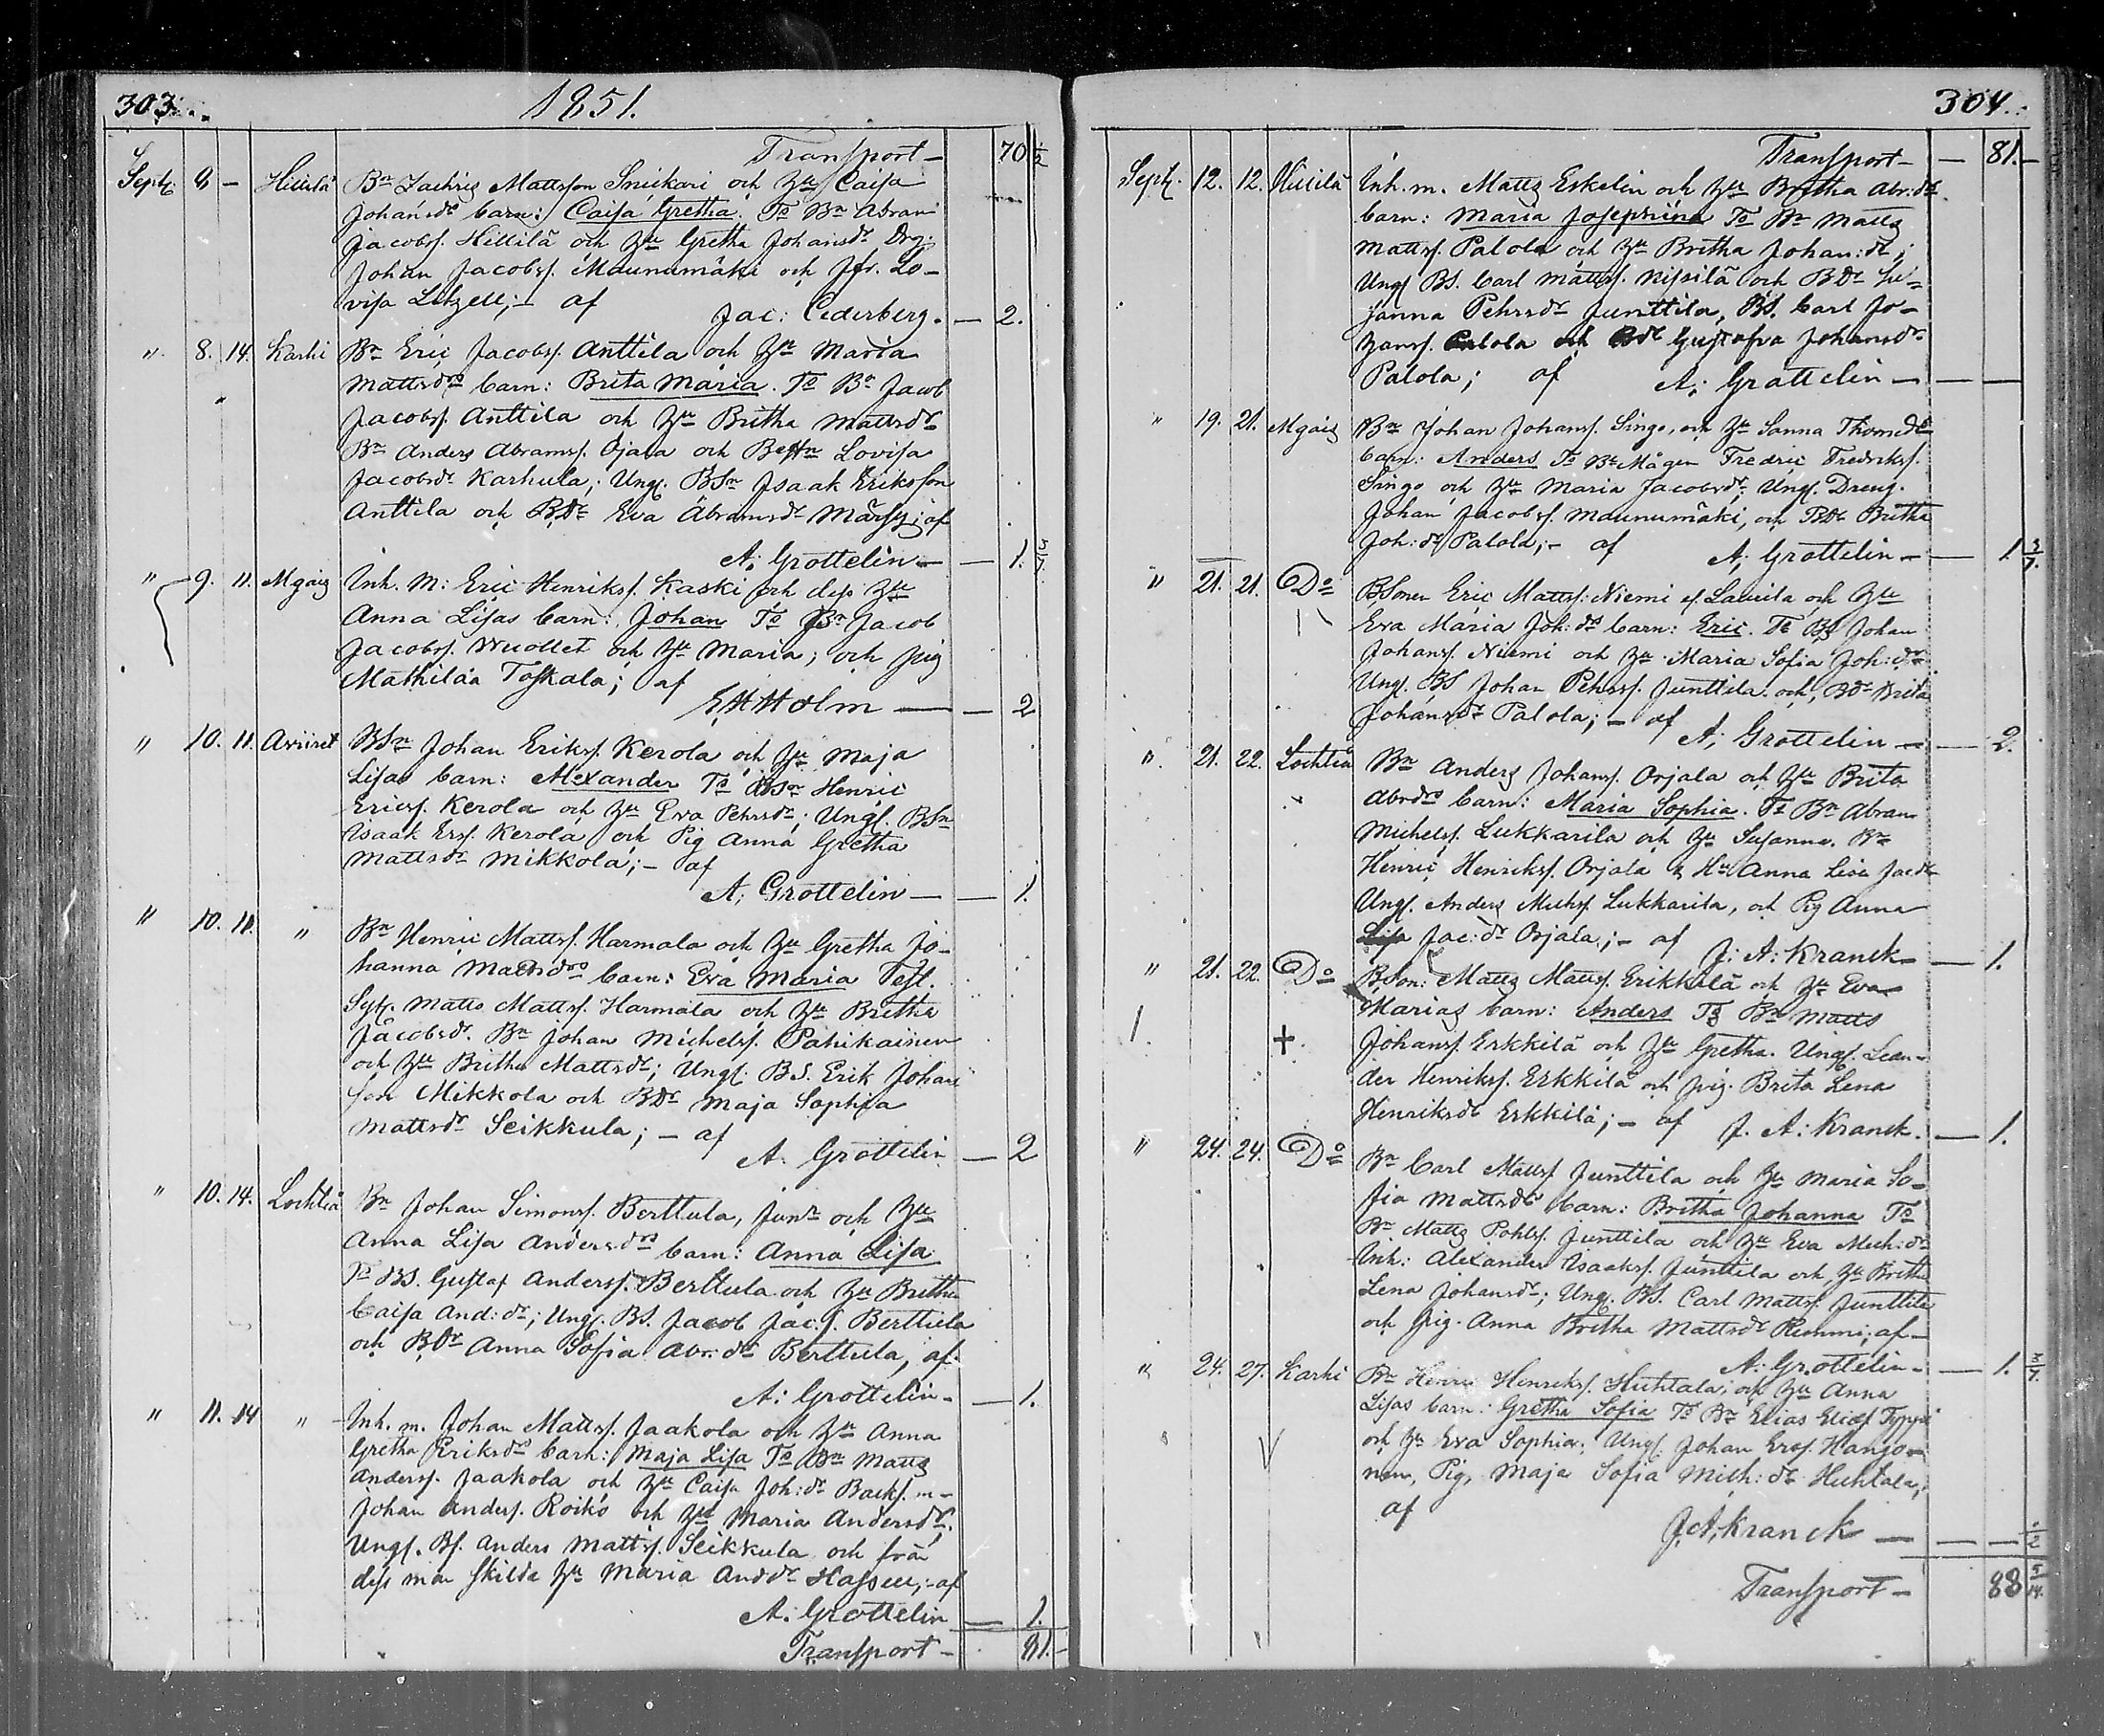 303.
1851.
Transport — 70 1/2
Sept. 8 — Hillilä Bn Zachris Mattsson Snickari och Hu Caisa
Johansdr barn: Caisa Gretha. To Bn Abram
Jacobsf. Hillilä och Hu Gretha Johansdr Drg.
Johan Jacobsf. Maunumäki och Jfr. Lo-
visa Litzell; — af
Jac: Cederberg. — 2.
" 8. 14. Karhi Bn Eric Jacobsf. Anttila och Hu Maria
Mattsdrs barn: Brita Maria. To Bn Jacob
Jacobsf. Anttila och Hu Britha Mattsdr
Bn Anders Abramsf. Ojala och Lovisa
Jacobsdr Karhula; Ungf. BSn Isaak Eriksson
Anttila och BDr Eva Abramsdr af
A: Grottelin — — 1. 3/7.
" 9. 11. Mgaig Inh. M: Eric Henriksf. Kaski och dess Hu
Anna Lisas barn: Johan To Bn Jacob
Jacobsf. Wuollet och Hu Maria; och pig
Mathilda Toskala; af
EHHolm — — 2
" 10. 11. Aviiret BSn Johan Eriksf. Kerola och Hu Maja
Lisas barn: Alexander To BSn Henric
Ericsf. Kerola och Hu Eva Pehrsdr; Ungf. BSn
Isaak Ersf. Kerola och Pig Anna Gretha
Mattsdr Mikkola; — af
A; Grottelin — — 1.
" 10. 11. " Bn Henric Mattsf. Harmala och Hu Gretha Jo-
hanna Mattsdrs barn: Eva Maria Test.
Sytn. Matts Mattsf. Harmala och Hu Britha
Jacobsdr. Bn Johan Michelsf. Pahikainen
och Hu Britha Mattsdr; Ungf. BS. Erik Johans
son Mikkola och BDr Maja Sophia
Mattsdr Seikkula; — af
A. Grottelin — 2
" 10. 14. Lochteå Bn Johan Simonsf. Berttula, junr och Hu
Anna Lisa Andersdrs barn: Anna Lisa
To BS. Gustaf Andersf. Berttula och Hu Britha
Caisa And: dr; Ungf. BS. Jacob Jac. f. Berttula
och BDr Anna Sofia Abr: dr Berttula, af
A: Grottelin — — 1.
" 11. 14 " Inh. m. Johan Mattsf. Jaakola och Hu Anna
Gretha Eriksdrs barn: Maja Lisa To Bn Matts
Andersf. Jaakola och Hu Caisa Joh: dr Backs. m—
Johan Andersf. Roiko och Hu Maria Andersdr.
Ungf. Bs. Anders Mattsf. Seikkula och från
dess man skilda Hu Maria Anddr af
A: Grottelin — 1.
Transport — 81. —
304.
Transport — — 81. —
Sept. 12. 12. Hillilä Inh. m. Matts Eskelin och Hu Britha Abr: drs
barn: Maria Josephina To Bn Matts
Mattsf. Palola och Hu Britha Johan: dr;
Ungf BS. Carl Mattsf. Nissilä och BDr Su-
sanna Pehrsdr Junttila, BS. Carl Jo-
hansf. Palola och BDr Gustafva Johansdr
Palola; af A; Grottelin — — —
" 19. 21. Mgaig Bn Johan Johansf. Singo, och Hu Sanna Thomdrs
barn: Anders To Bn Mågen Fredric Fredriksf.
Singo och Hu Maria Jacobsdr; Ungf. Dreng.
Johan Jacobsf. Maunumäki, och BDr Britha
Joh: dr Palola; — af A; Grottelin — — 1 3/7.
" 21. 21. Do BSonen Eric Mattsf: Niemi ef. och Hu
Eva Maria Joh: drs barn: Eric. To BS Johan
Johansf. Niemi och Hu Maria Sofia Joh: dr
Ungf. BS Johan Pehrsf. Junttila och, BDr Brita
Johansdr Palola; — af
A; Grottelin — — 2.
" 21. 22. Lochteå Bn Anders Johansf. Orjala och Hu Brita
Abrdrs barn: Maria Sophia. To Bn Abram
Michelsf. Lukkarila och Hu Susanna. Bn
Henric Henriksf. Orjala & Hu Anna Lisa Jacdr
Ungf. Anders Michsf. Lukkarila, och Pig Anna
Lisa Jac: dr Orjala; — af J: A: Kranck — 1.
" 21. 22. Do BSon: Matts Mattsf. Erikkilä och Hu Eva
Marias barn: Anders To Bn Matts
Johansf. Erkkilä och Hu Gretha. Ungf. Lean-
der Henriksf. Erkkilä och pig. Brita Lena
Henriksdr Erkkilä; — af J. A: Kranck. — 1.
" 24. 24. Do Bn Carl Mattsf Junttila och Hu Maria So-
fia Mattsdrs barn: Britha Johanna To
Bn Matts Pohlsf. Junttila och Hu Eva Mich: dr
Inh: Alexander Isaaksf. Junttila och Hu Britha
Lena Johansdr; Ungf. BS. Carl Mattsf. Junttila
och pig. Anna Britha Mattsdr af —
A: Grottelin — — 1. 3/7.
" 24. 27. Karhi Bn Henric Henriksf. Huhtala; och Hu Anna
Lisas barn: Gretha Sofia To Bn Elias Eliasf Typpö
och Hu Eva Sophia; Ungf. Johan Ersf. Hanjo-
nen, Pig. Maja Sofia Mich: dr Huhtala;
af
J. A; Kranck — — — 1/2
Transport — 88 5/14.